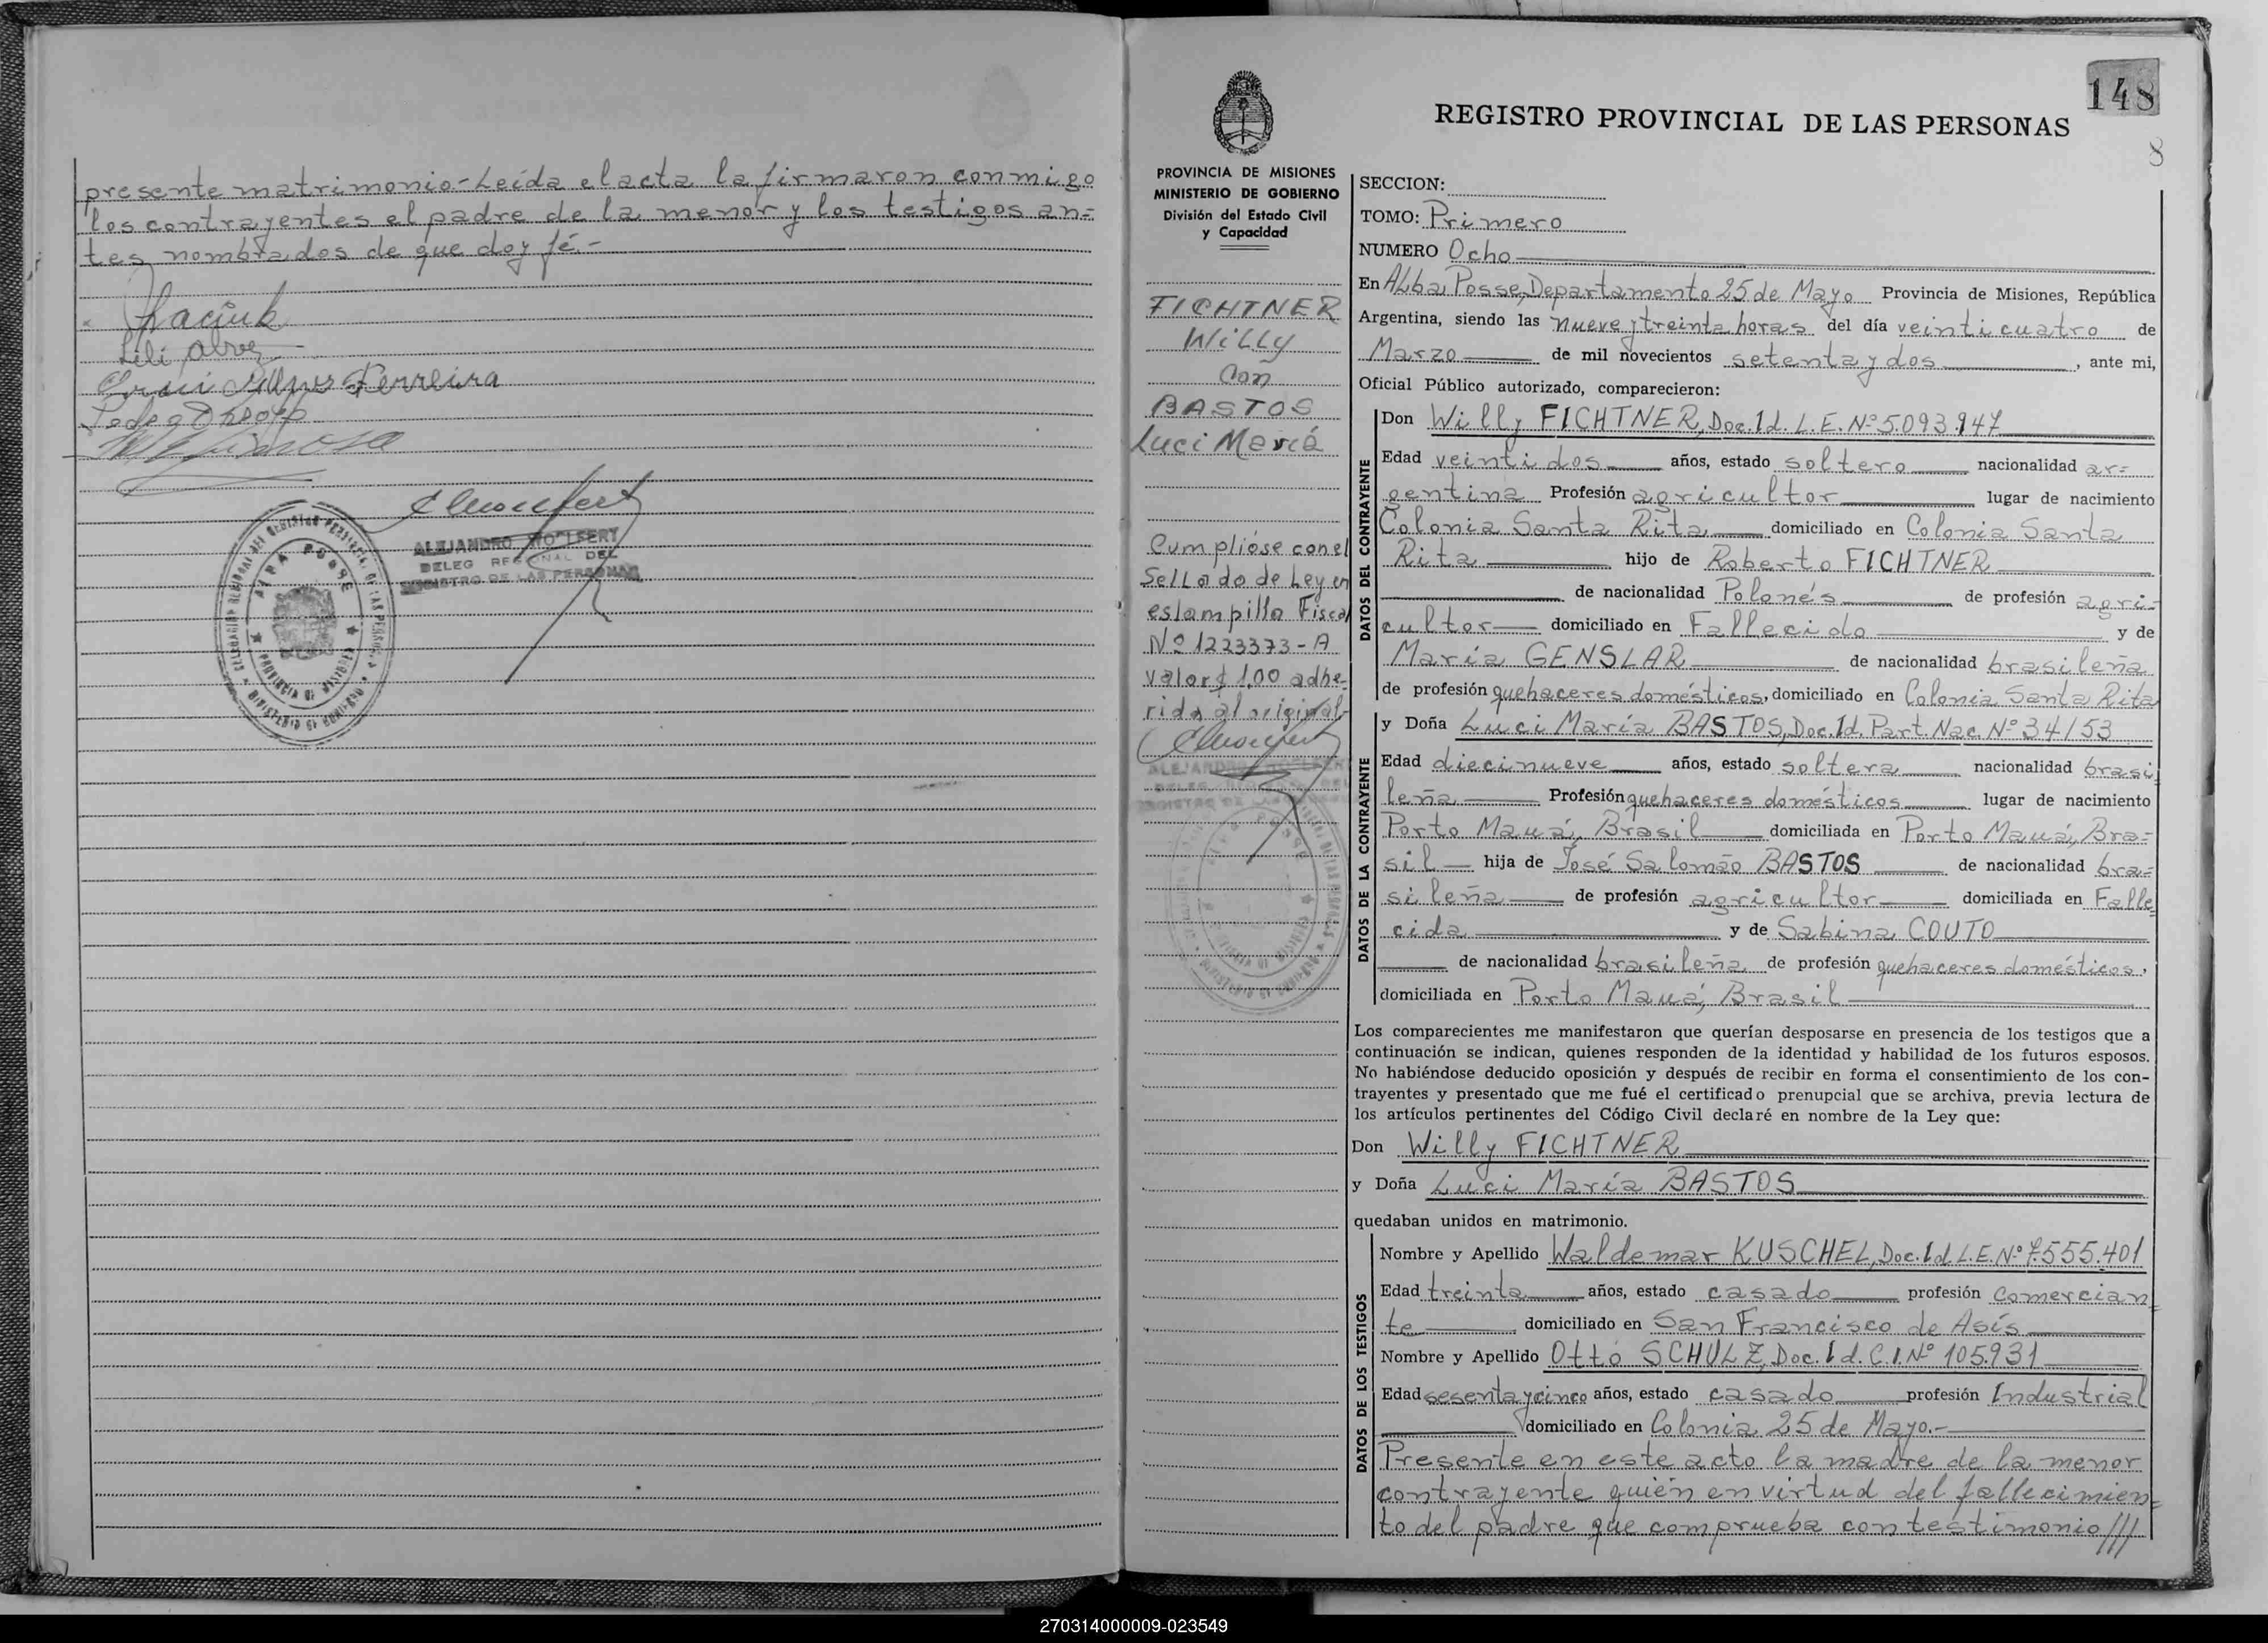 presente matrimonio-Leída el acta la firmaron conmigo
los contrayentes el padre de la menor y los testigos an=
tes nombrados de que doy fé.-
Lili Alvez
Ferreira
ALEJANDRO WOLFERT
DELEG REGIONAL DEL
REGISTRO DE LAS PERSONAS
ALBA POSSE
PROVINCIA DE MISIONES
148
8
REGISTRO PROVINCIAL DE LAS PERSONAS
PROVINCIA DE MISIONES
MINISTERIO DE GOBIERNO
División del Estado Civil
y Capacidad
FICHTNER
Willy
Con
BASTOS
Luci María
Cumplióse con el
Sellado de Ley en
estampilla Fiscal
Nº 1223373-A
valor $ 1,00 adhe-
rida al original-
SECCION:
TOMO: Primero
NUMERO Ocho
En Alba Posse, Departamento 25 de Mayo Provincia de Misiones, República
Argentina, siendo las nueve y treinta horas del día veinticuatro de
Marzo de mil novecientos setenta y dos, ante mi,
Oficial Público autorizado, comparecieron:
DATOS DEL CONTRAYENTE
Don Willy FICHTNER, Doc. Id. L.E. Nº 5.093.947
Edad veintidos años, estado soltero nacionalidad ar=
gentina Profesión agricultor lugar de nacimiento
Colonia Santa Rita domiciliado en Colonia Santa
Rita hijo de Roberto FICHTNER
de nacionalidad Polonés de profesión agri-
cultor domiciliado en Fallecido y de
María GENSLAR de nacionalidad brasileña
de profesión quehaceres domésticos, domiciliado en Colonia Santa Rita
DATOS DE LA CONTRAYENTE
y Doña Luci María BASTOS, Doc. Id. Part. Nac. Nº 34/53
Edad diecinueve años, estado soltera nacionalidad brasi
leña Profesión quehaceres domésticos lugar de nacimiento
Porto Mauá, Brasil domiciliada en Porto Mauá, Bra=
sil hija de José Salomão BASTOS de nacionalidad bra=
sileña de profesión agricultor domiciliada en Falle
cida y de Sabina COUTO
de nacionalidad brasileña de profesión quehaceres domésticos,
domiciliada en Porto Mauá, Brasil
Los comparecientes me manifestaron que querían desposarse en presencia de los testigos que a
continuación se indican, quienes responden de la identidad y habilidad de los futuros esposos.
No habiéndose deducido oposición y después de recibir en forma el consentimiento de los con-
trayentes y presentado que me fué el certificado prenupcial que se archiva, previa lectura de
los artículos pertinentes del Código Civil declaré en nombre de la Ley que:
Don Willy FICHTNER
y Doña Luci María BASTOS
quedaban unidos en matrimonio.
DATOS DE LOS TESTIGOS
Nombre y Apellido Waldemar KUSCHEL, Doc. Id L.E. Nº 7.555.401
Edad treinta años, estado casado profesión Comercian
te domiciliado en San Francisco de Asís
Nombre y Apellido Otto SCHULZ, Doc. Id. C.I. Nº 105.931
Edad sesenta y cinco años, estado casado profesión Industrial
domiciliado en Colonia 25 de Mayo.-
Presente en este acto la madre de la menor
contrayente quién en virtud del fallecimien=
to del padre que comprueba con testimonio///
270314000009-023549